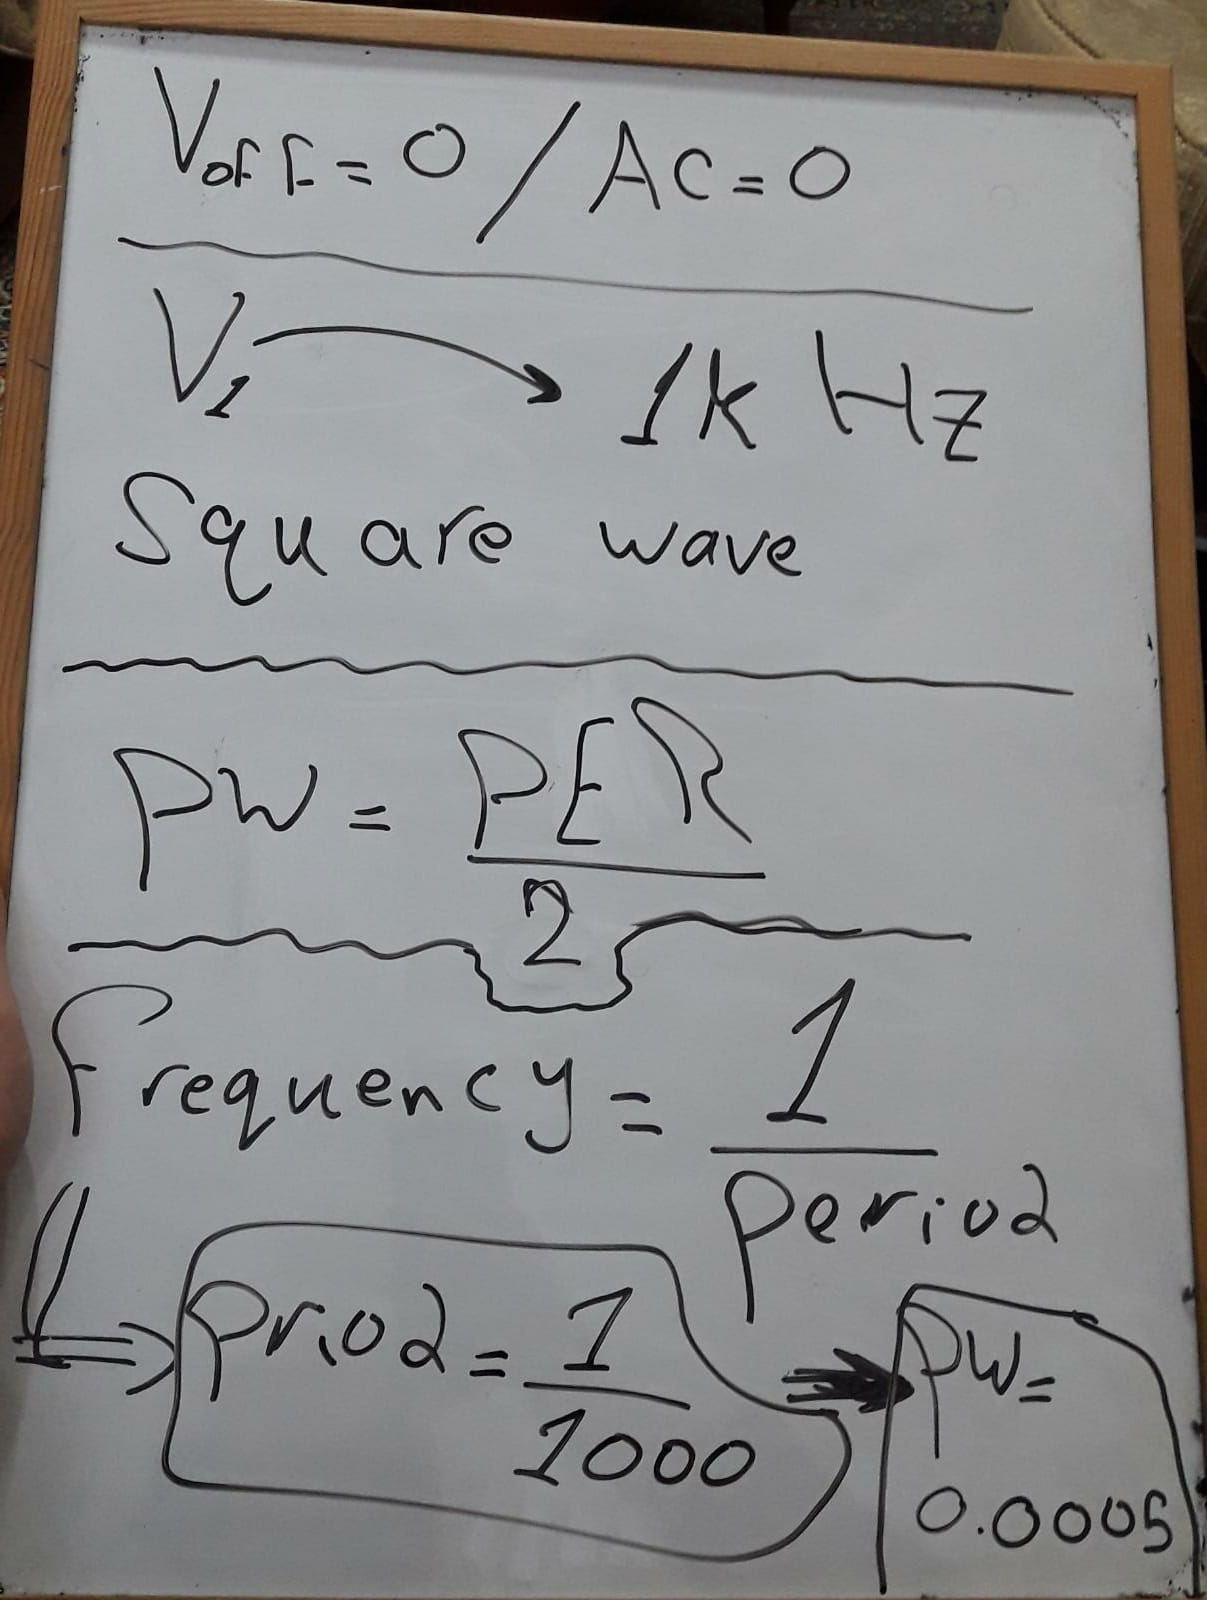 VOFF = 0 / AC = 0
V1 → 1k Hz
Square wave
PW = PER
2
Frequency = 1
Period
Priod = 1
1000
PW =
0.0005